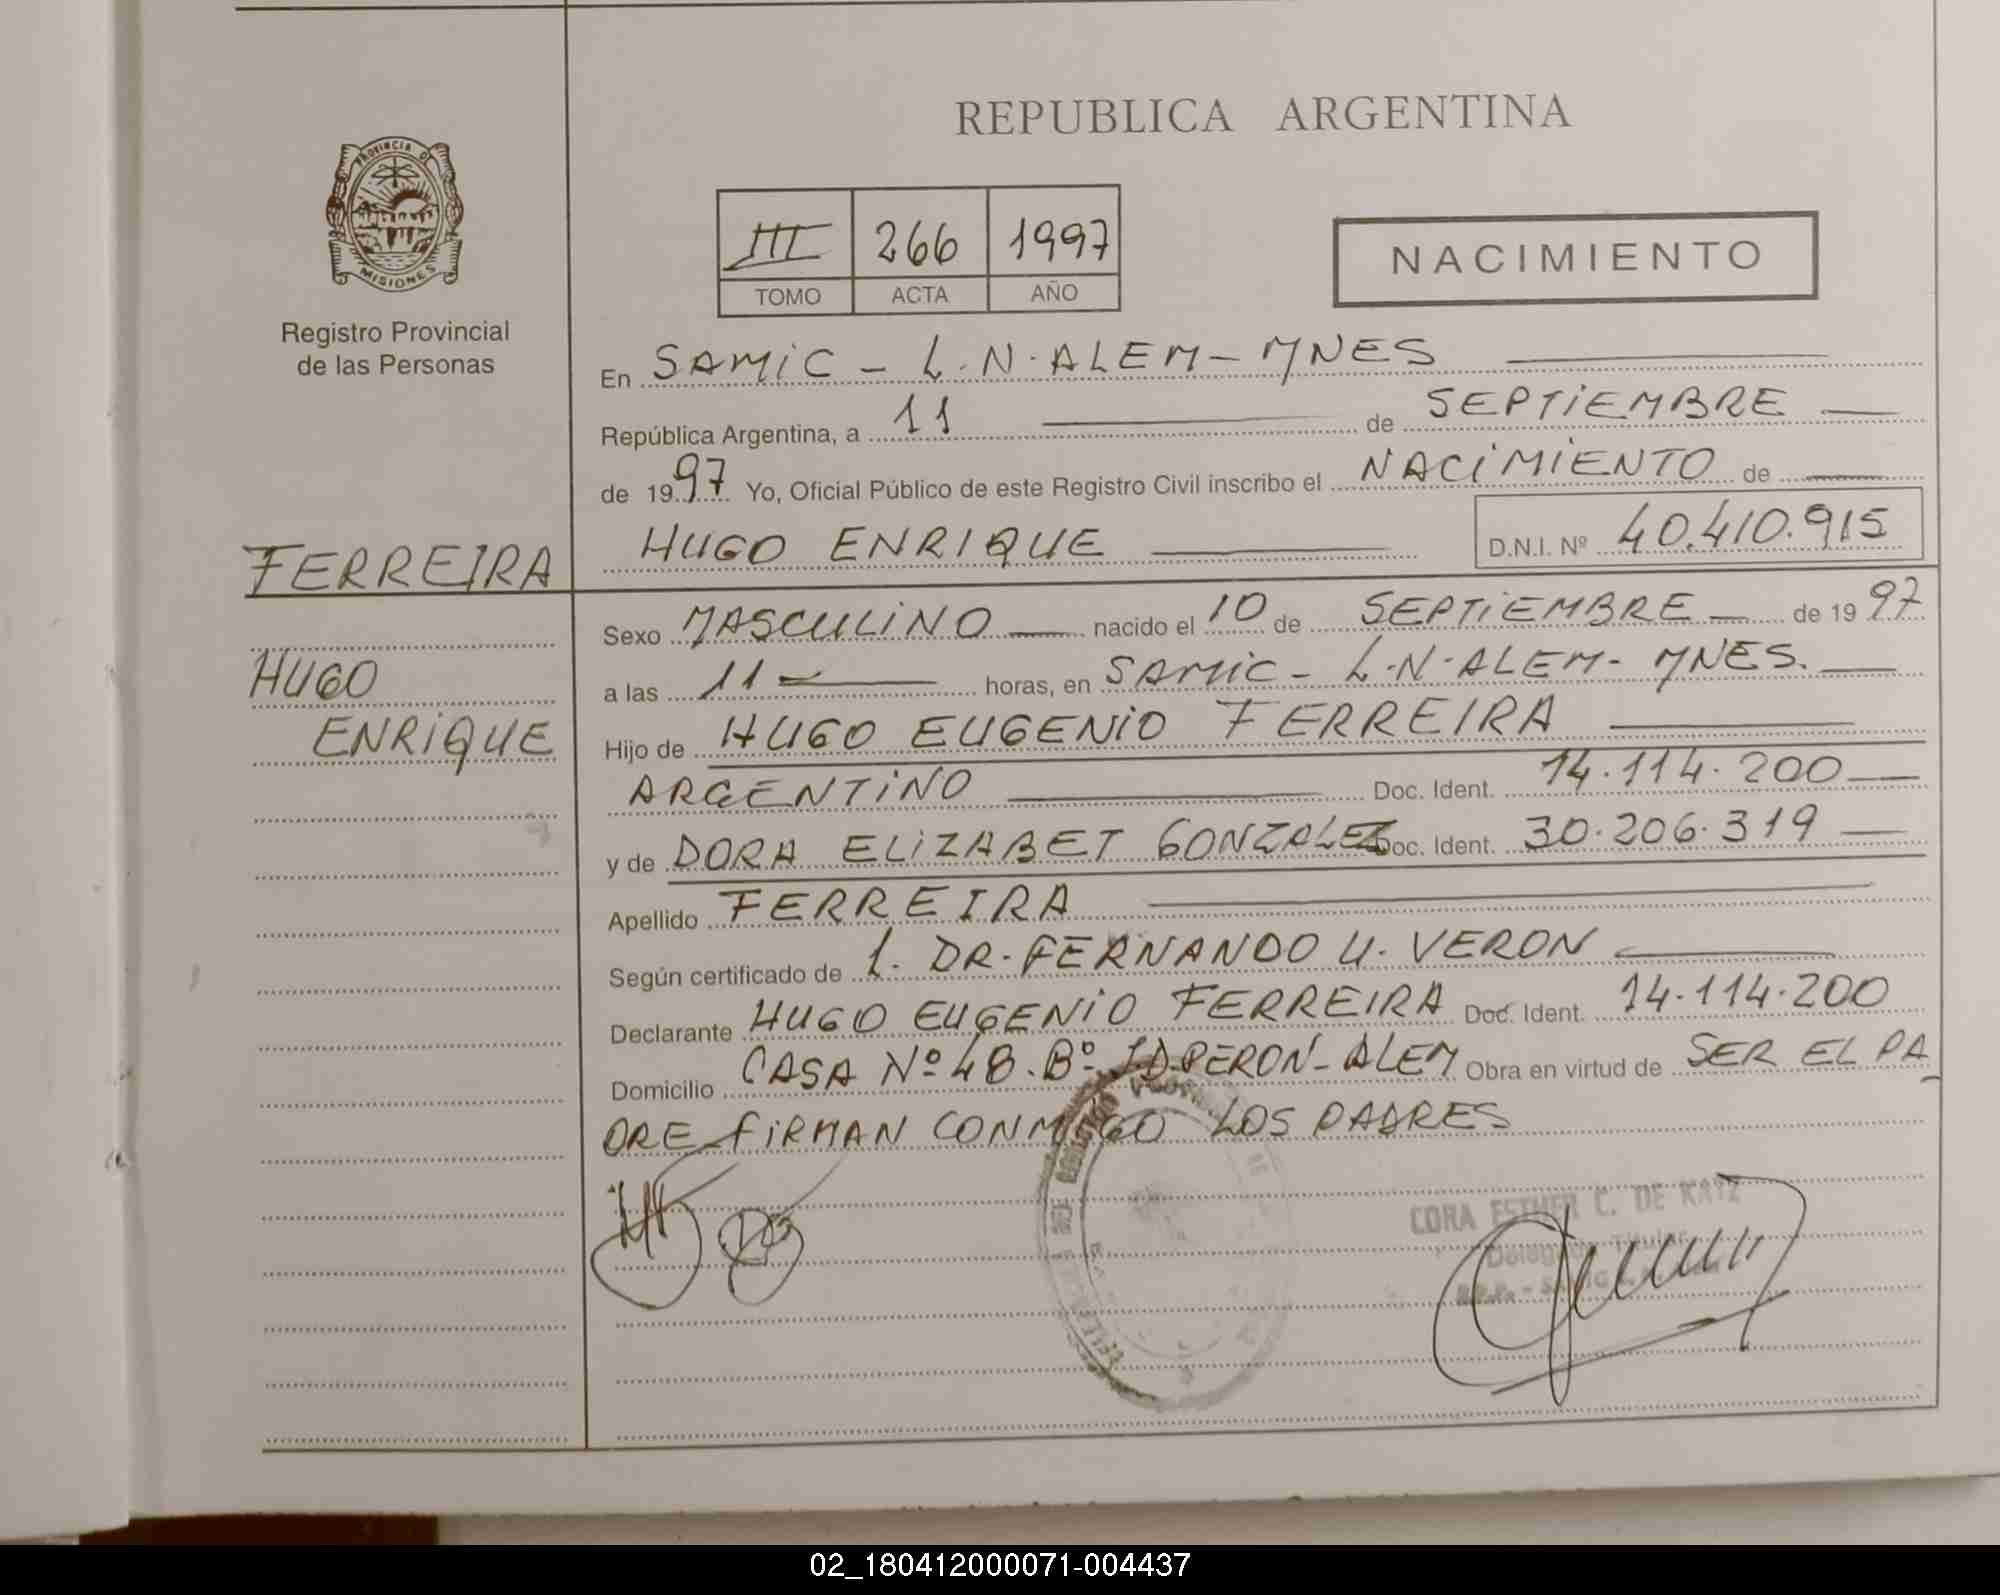 REPUBLICA ARGENTINA
PROVINCIA DE
MISIONES
Registro Provincial
de las Personas
III 266 1997
TOMO ACTA AÑO
NACIMIENTO
En SAMIC - L.N.ALEM - MNES
República Argentina, a 11 de SEPTIEMBRE
de 1997 Yo, Oficial Público de este Registro Civil inscribo el NACIMIENTO de
HUGO ENRIQUE D.N.I. Nº 40.410.915
FERREIRA
HUGO
ENRIQUE
Sexo MASCULINO nacido el 10 de SEPTIEMBRE de 1997
a las 11 horas, en SAMIC - L.N.ALEM - MNES.
Hijo de HUGO EUGENIO FERREIRA
ARGENTINO Doc. Ident. 14.114.200
y de DORA ELIZABET GONZALEZ Doc. Ident. 30.206.319
Apellido FERREIRA
Según certificado de 1. DR. FERNANDO U. VERON
Declarante HUGO EUGENIO FERREIRA Doc. Ident. 14.114.200
Domicilio CASA Nº 48. Bº. J.D.PERON - ALEM Obra en virtud de SER EL PA
DRE FIRMAN CONMIGO LOS PADRES
CORA ESTHER C. DE KATZ
Delegada Titular
02_180412000071-004437